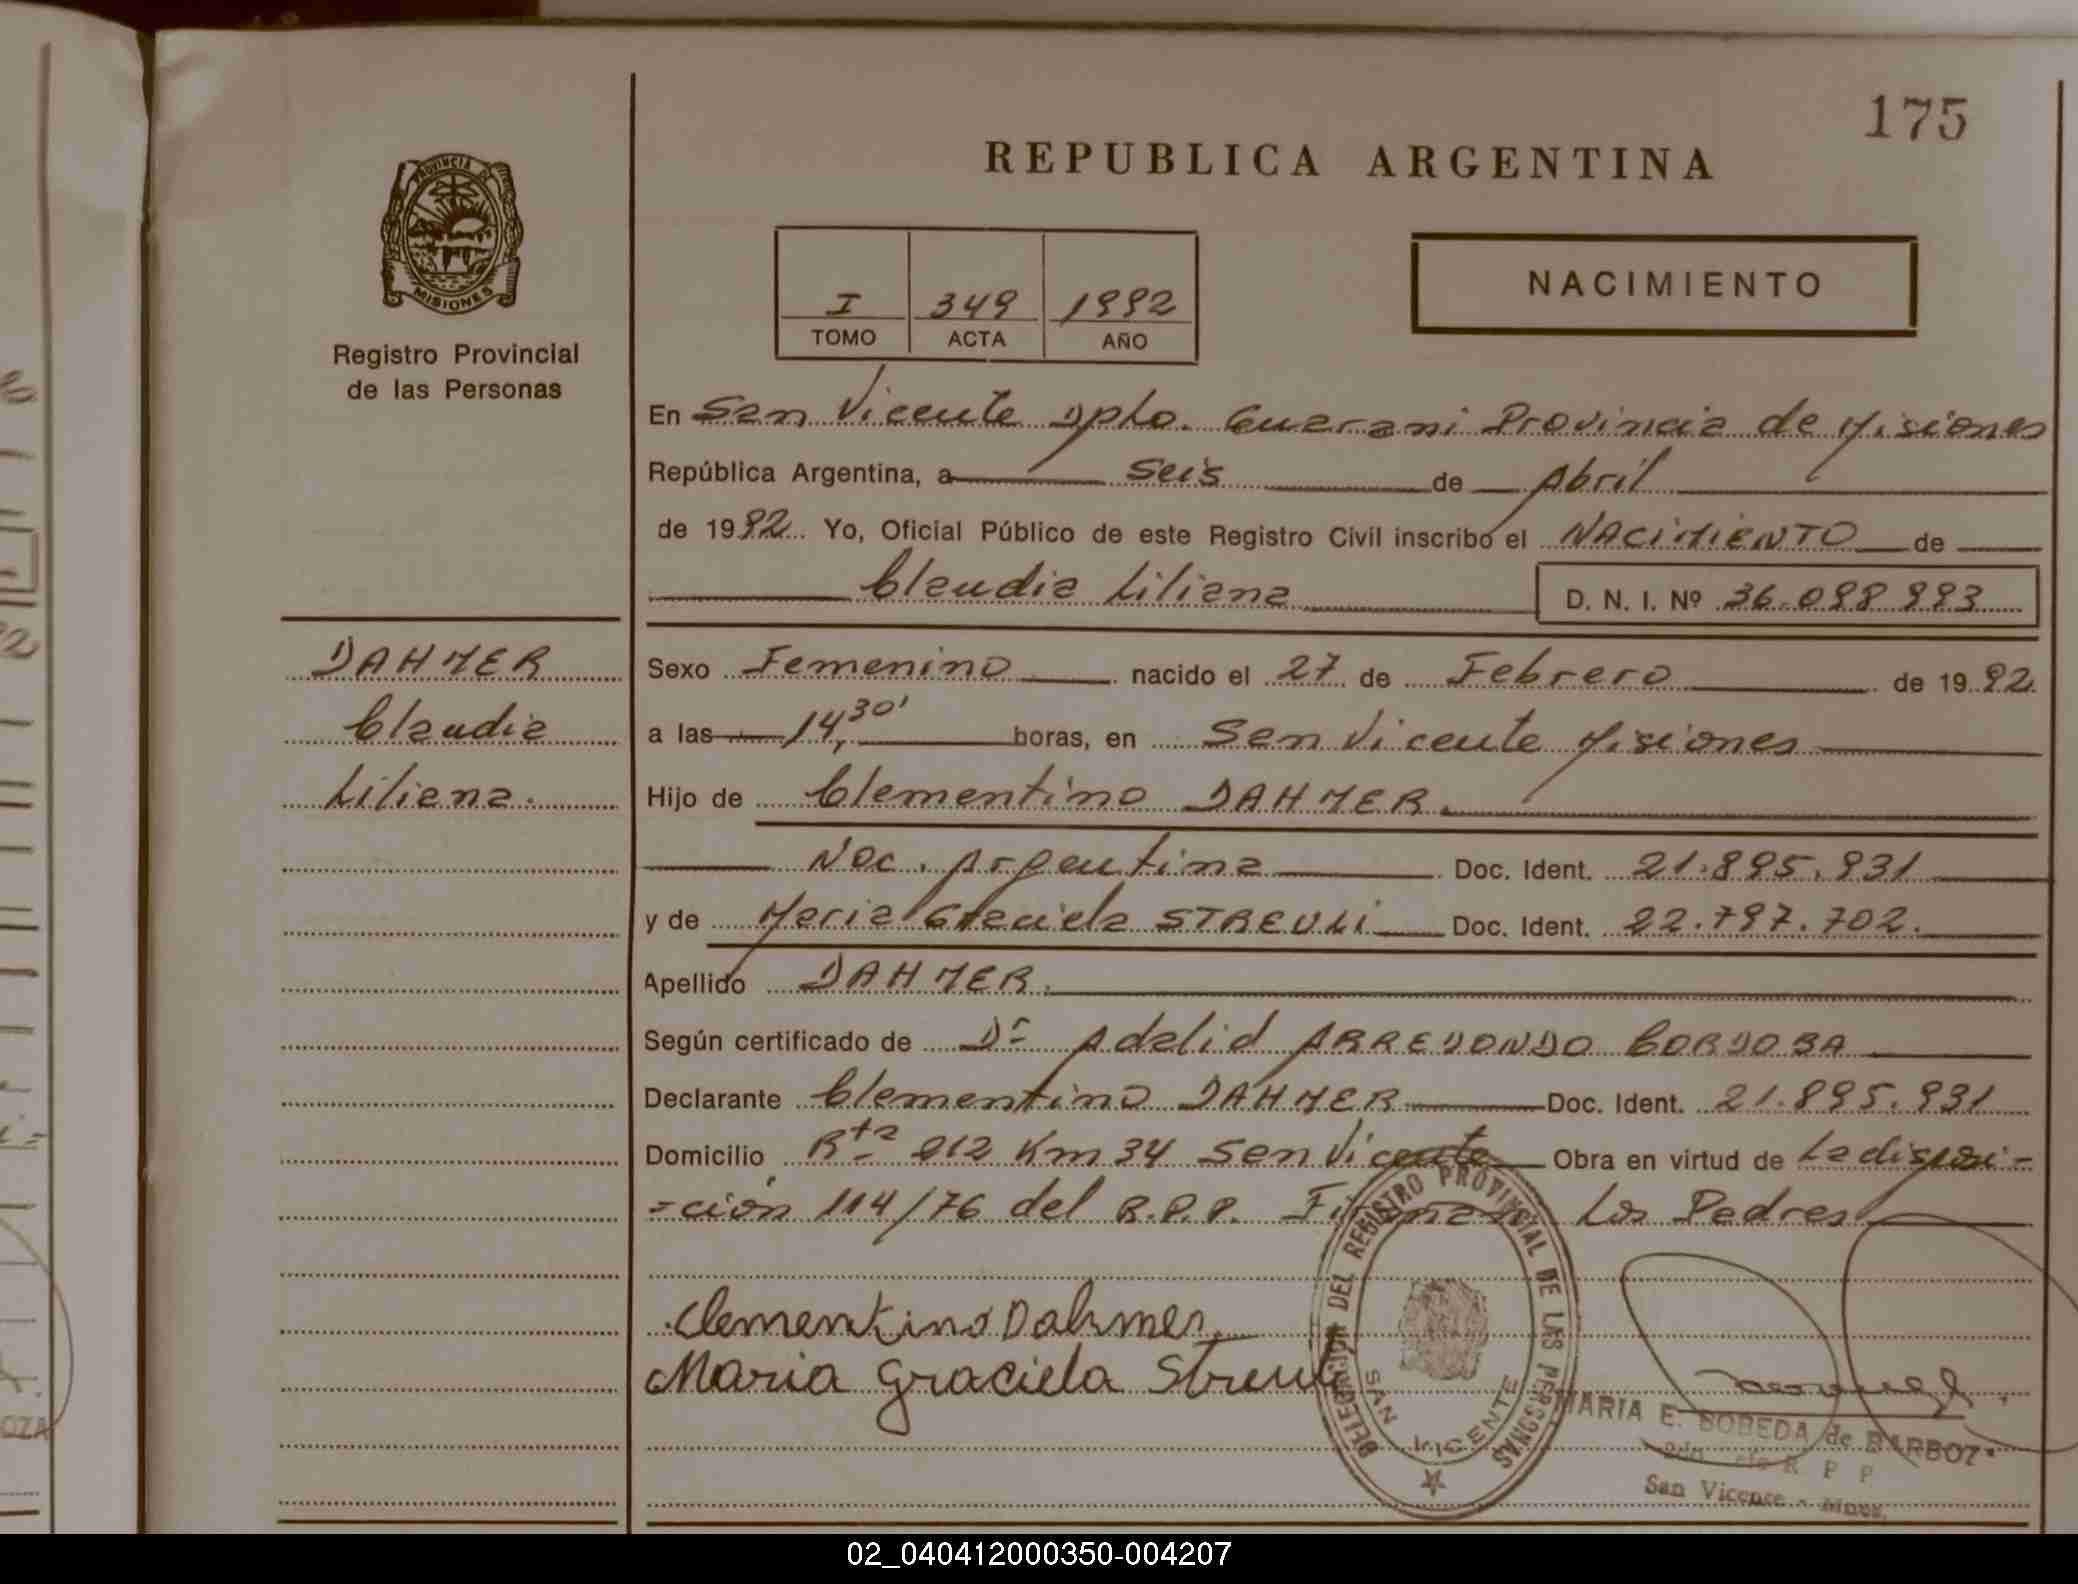 175
REPUBLICA ARGENTINA
PROVINCIA DE
MISIONES
Registro Provincial
de las Personas
I 349 1992
TOMO ACTA AÑO
NACIMIENTO
En San Vicente Dpto. Guarani Provincia de Misiones
República Argentina, a seis de Abril
de 1992 Yo, Oficial Público de este Registro Civil inscribo el NACIMIENTO de
Claudia Liliana D. N. I. Nº 36.098 993
DAHMER
Claudia
Liliana.
Sexo Femenino nacido el 27 de Febrero de 1992
a las 14,30' horas, en San Vicente Misiones
Hijo de Clementino DAHMER.
Nac. Argentina Doc. Ident. 21.895.931
y de Maria Graciela STREULI Doc. Ident. 22.797.702.
Apellido DAHMER.
Según certificado de Dr Adalid ARREDONDO CORDOBA
Declarante Clementino DAHMER Doc. Ident. 21.895.931
Domicilio Rta 212 Km 34 San Vicente Obra en virtud de La disposi-
-ción 114/76 del R.P.P. Firman Los Padres
Clementino Dahmer
Maria Graciela Streuli
DELEGACION DEL REGISTRO PROVINCIAL DE LAS PERSONAS
SAN VICENTE
MARIA E. BOBEDA de BARBOZ
R P P
San Vicente - Mnes.
OZA
02_040412000350-004207